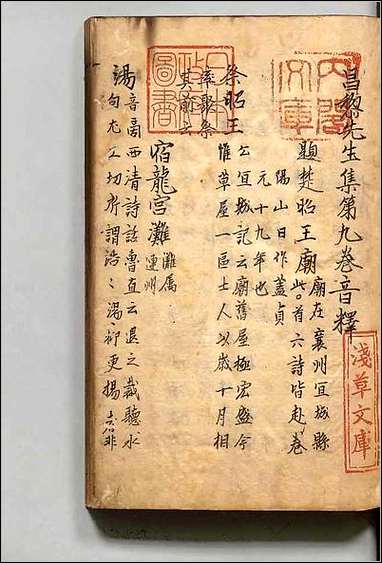 昌黎先生集第九卷音釋
題楚昭王廟 廟在襄州宜城縣
此卷首六詩皆赴
陽山日作蓋貞
元十九年也
祭昭王 公宜城記云廟舊屋極宏盛今
惟草屋一區士人以歲十月相
率聚祭
其前云
宿龍宮灘 灘屬
連州
湯 音商西清詩話魯直云退之裁聽水
句尤工切所謂浩〻湯〻抑更揚者非
内閣
文庫
日本
政府
圖書
淺草文庫